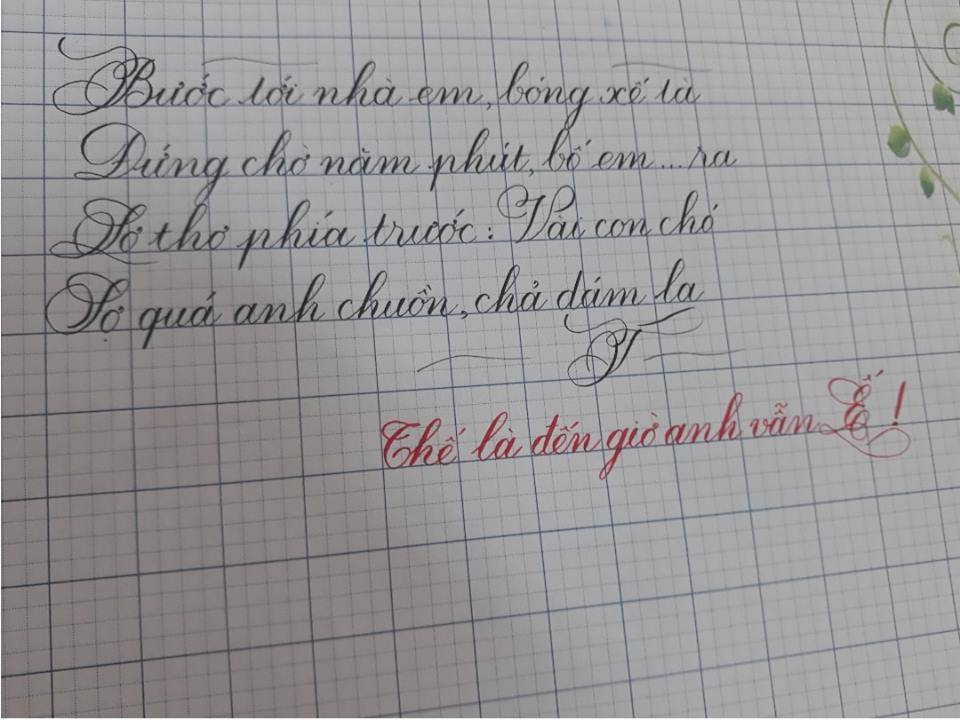 Bước tới nhà em, bóng xế tà
Đứng chờ năm phút, bố em...ra
Lơ thơ phía trước: Vài con chó
Sợ quá anh chuồn, chả dám la
Thế là đến giờ anh vẫn Ế!